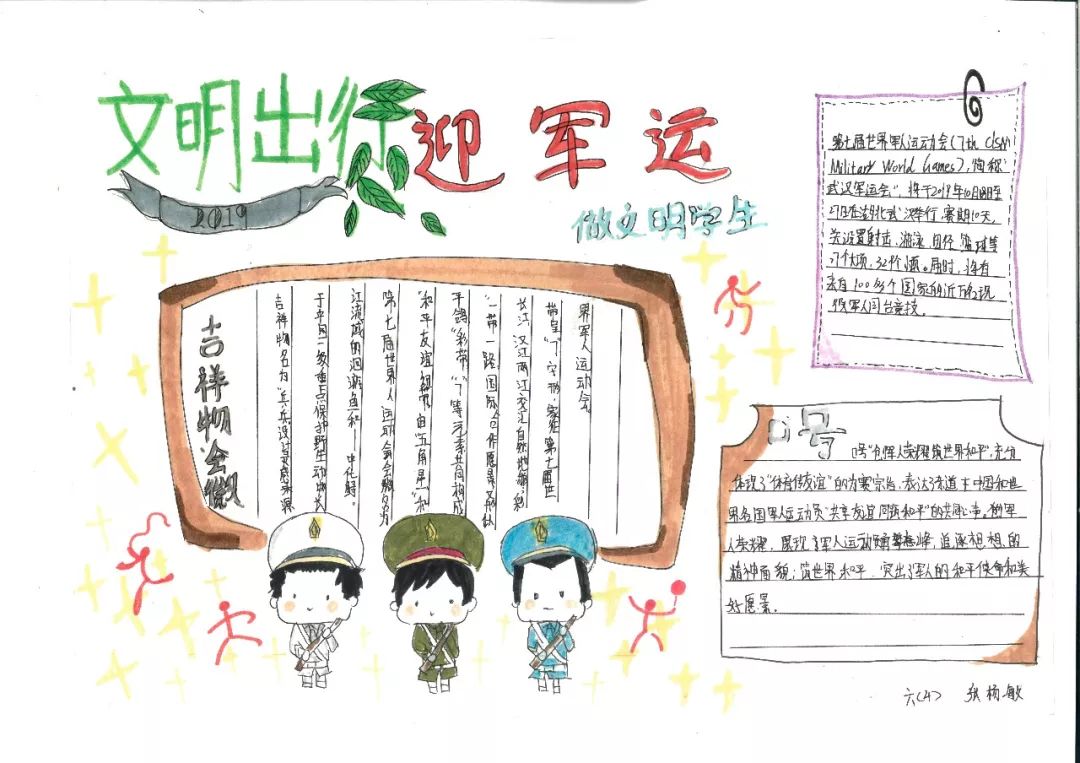 文明出行
迎军运
2019
做文明学生
吉祥物会徽
吉祥物名为“兵兵”设计灵感来源
于中国一级重点保护野生动物长
江流域的洄游鱼和——中华鲟。
第七届世界人运动会会徽名为
“和平友谊纽带”由“五角星”“和
平鸽”“彩带”“7”等元素共同构成
“一带一路”国际合作愿景又形似
长江、汉江两江交汇自然地貌，彩
带呈“7”字形，寓指第七届世
界军人运动会。
第七届世界军人运动会(7th CISM
Military World Games)，简称
“武汉军运会”，将于2019年10月18日至
27日在湖北武汉举行，赛期10天，
共设置射击、游泳、田径、篮球等
27个大项、329个小项。届时，将有
来自100多个国家的近万名现
役军人同台竞技。
口号
口号“创军人荣耀筑世界和平”，充分
体现了“体育传友谊”的办赛宗旨，表达了东道主中国和世
界各国军人运动员“共享友谊同筑和平”的共同心声。创军
人荣耀，展现了军人运动员勇攀高峰，追逐梦想的
精神面貌；筑世界和平，突出了军人的和平使命和美
好愿景。
六(4) 张杨敏